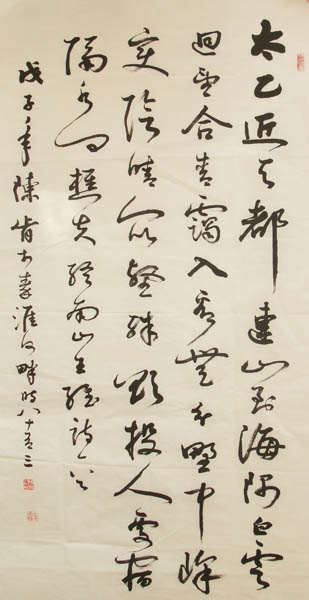 太乙近天都連山到海隅白雲
迴望合青靄入看無分野中峰
變陰晴眾壑殊欲投人處宿
隔水問樵夫終南山王維詩一首
戊子年陳肯淮河畔時八十有三